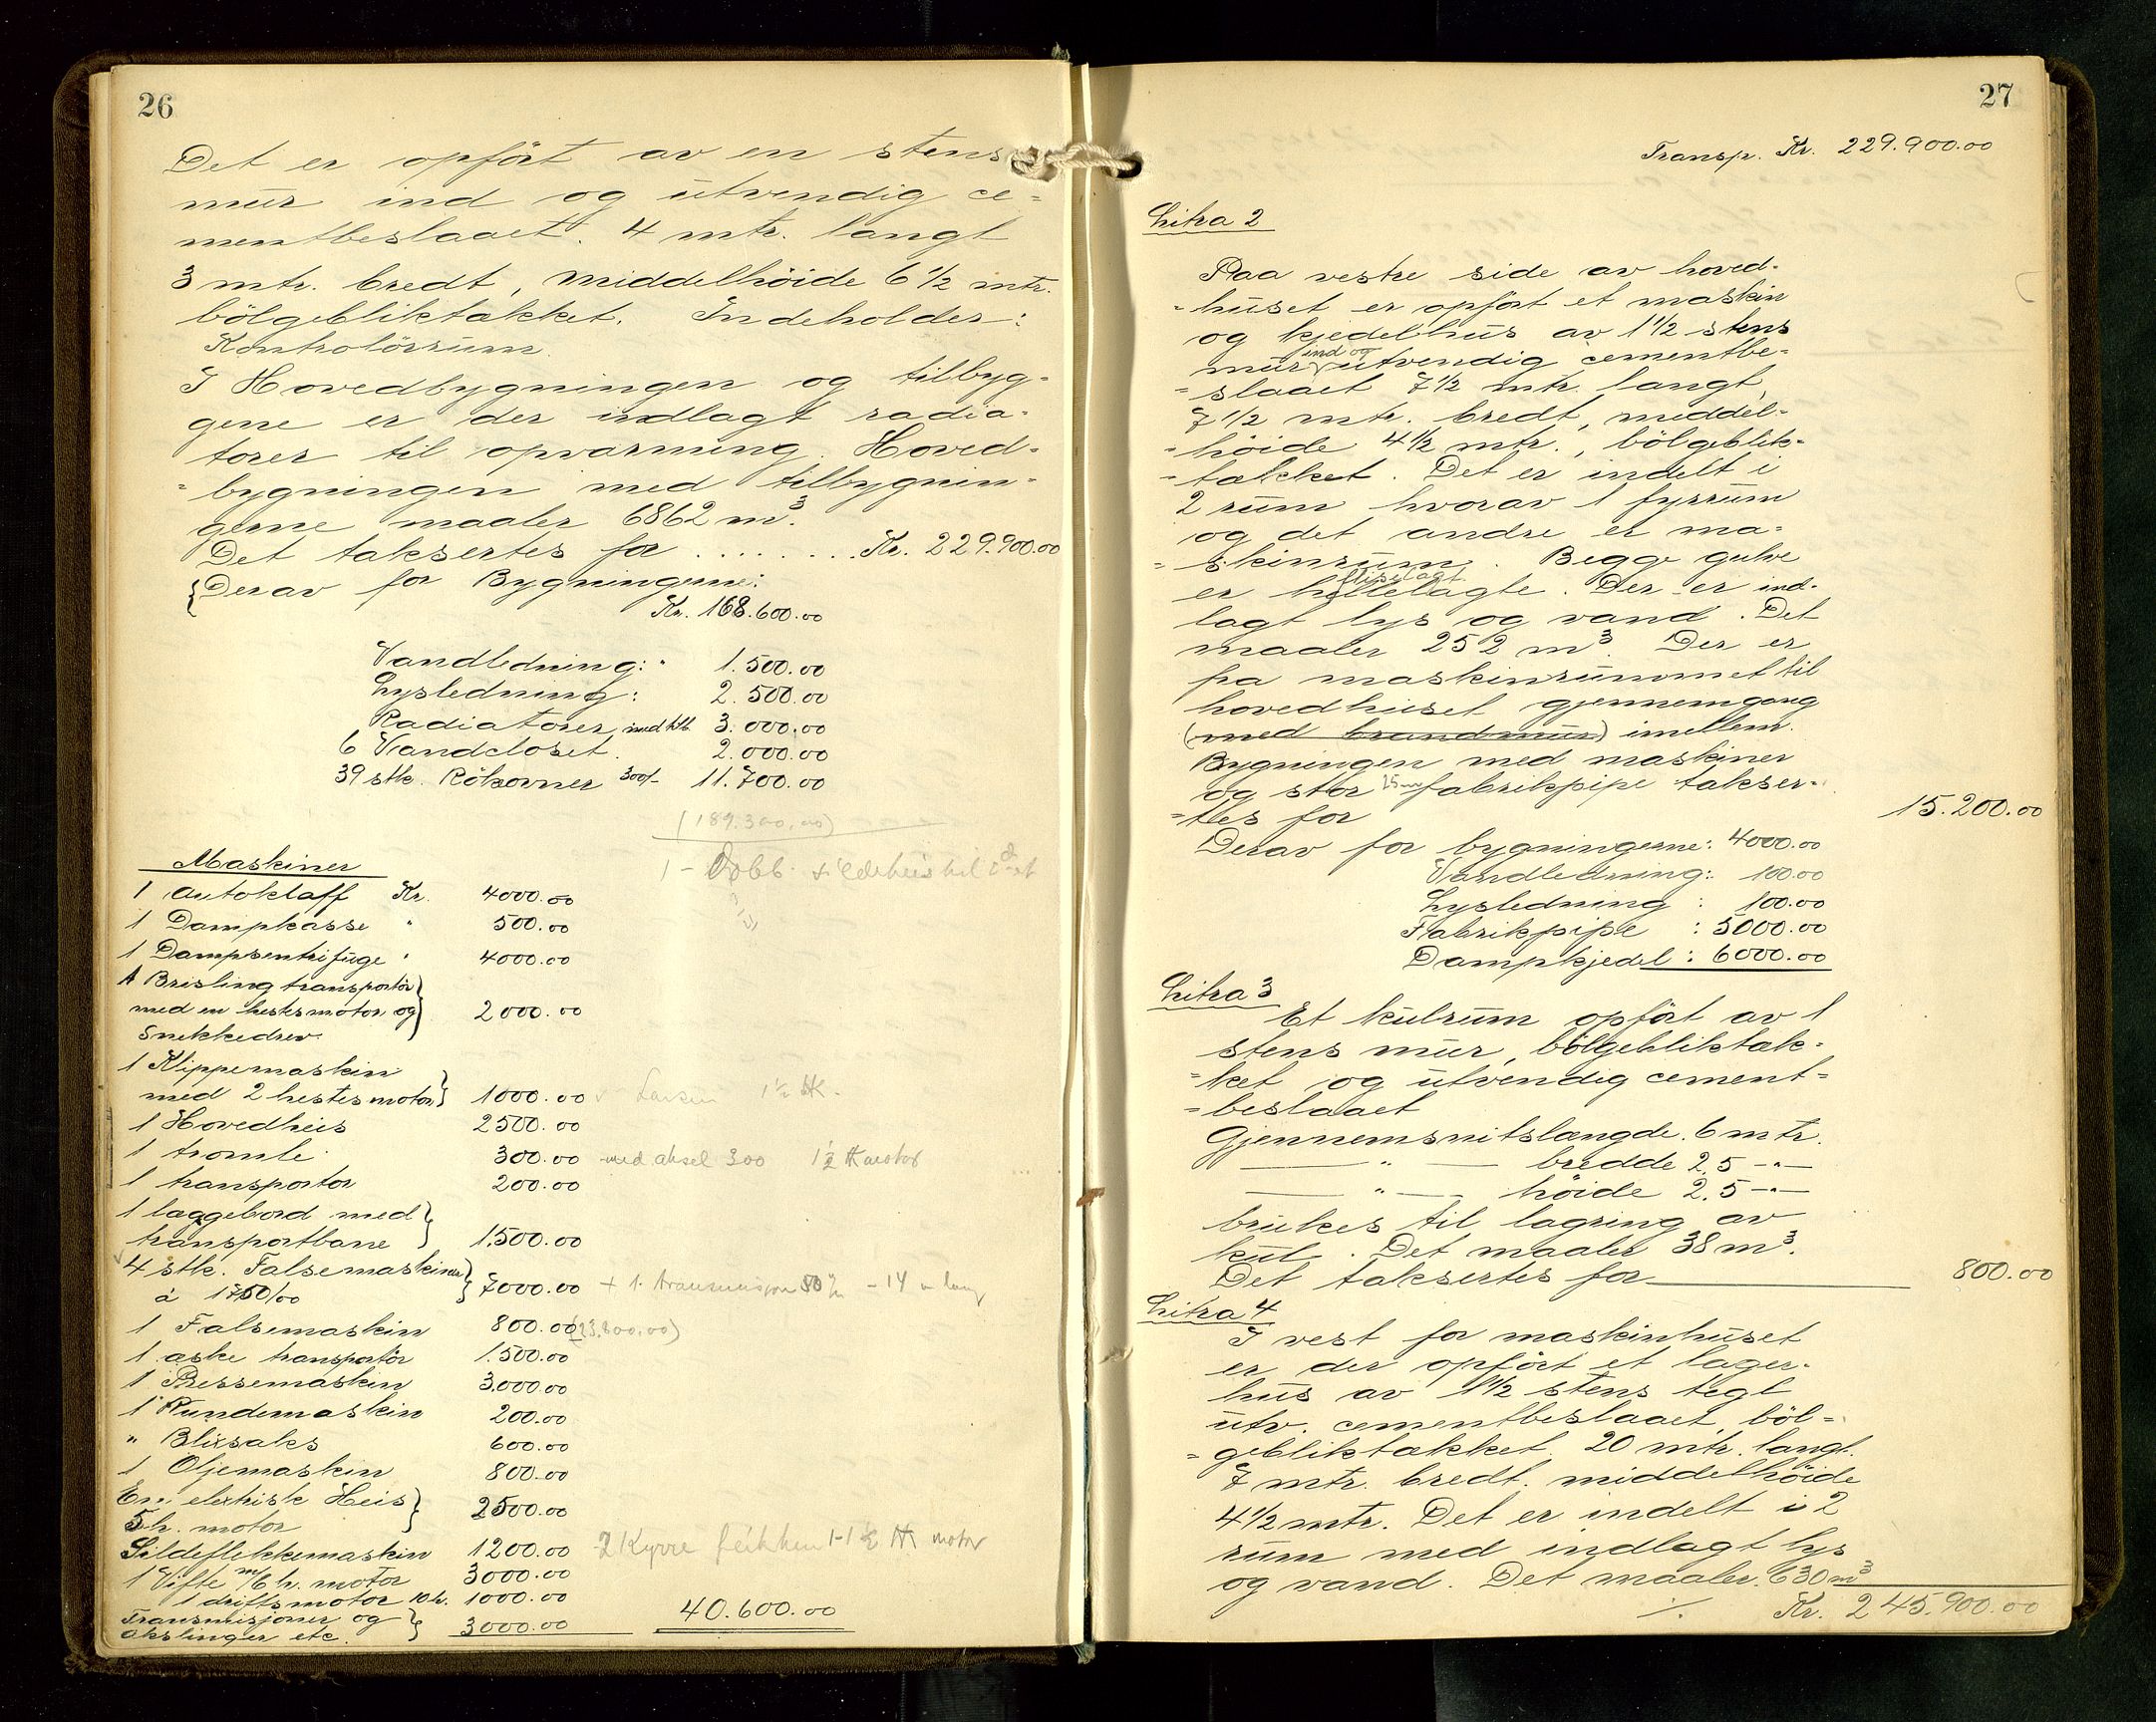 26
Det er opført av en stens
mur ind og utvendig ce-
mentbeslaaet. 4 mtr. langt
3 mtr. bredt, middelhöide 6 1/2 mtr.
bölgebliktækket. Indeholder:
Kontrolörrum.
I Hovedbygningen og tilbyg-
gene er der indlagt radia-
torer til opvarming. Hoved-
=bygningen med tilbygnin-
gerne maaler 6862 m³.
Det taksertes for ........ Kr. 229.900.00
{Derav for Bygningerne:
Kr. 168.600.00
Vandledning: " 1.500.00
Lysledning: 2.500.00
Radiatorer, 3.000.00
6 Vandcloset. 2.000.00
39 stk. Rökovner 300/- 11.700.00
(189.300.00)
Maskiner
1 Autoklaff Kr. 4000.00
1 Dampkasse " 500.00
1 Dampsentrifuge " 4000.00
1 Brisling transportör}
med en hestes motor og} 2000.00
Snekkedrev.
1 Klippemaskin
med 2 hestes motor} 1000.00 1 1/2 HK.
1 Hovedheis 2500.00
1 tromle 300.00 med aksel 300 1 1/2 HK motor
1 transportor 200.00
1 læggebord med}
transportbane} 1.500.00
4 stk. Falsemaskiner}
à 1750/00 } 7000.00 + 1. transmisjon 50 m/m - 14 m lang
1 Falsemaskin 800.00 (23.800.00)
1 æske transportör 1.500.00
1 Pressemaskin 3.000.00
1 Rundemaskin 200.00
" Blixsaks 600.00
1 Oljemaskin 800.00
En elektrisk Heis}
5 h. motor } 2500.00
Sildeflekkemaskin 1200.00 2 Kyvre 1-1 1/2 HK motor
1 Vifte m/6 h. motor 3000.00
1 driftsmotor 10 h. 1000.00
Transmisjoner og }
akslinger etc. } 3000.00 40.600.00
27
Transp. Kr. 229.900.00
Litra 2
Paa vestre side av hoved-
=huset er opfört et maskin
og kjedelhus av 1 1/2 stens
mur ind og utvendig cementbe-
=slaaet 7 1/2 mtr. langt,
7 1/2 mtr. bredt, middel-
=höide 4 1/2 mtr., bölgeblik-
=tækket. Det er indelt i
2 rum hvorav 1 fyrrum
og det andre er ma-
=skinrum. Begge gulve
er hellelagte fliselagt. Der er ind-
lagt lys og vand. Det
maaler 252 m³. Der er
pa maskinrummet til
hovedhuset gjennemgang
(med brandmur) imellem.
Bygningen med maskiner
og stor 25 m fabrikpipe takser-
=tes for 15.200.00
Derav for bygningerne: 4000.00
Vandledning: 100.00
Lysledning : 100.00
Fabrikpipe : 5000.00
Dampkjedel : 6000.00
Litra 3
Et kulrum opfört av 1
stens mur, bölgebliktæk-
=ket og utvendig cement-
=beslaaet
Gjennemsnitslængde. 6 mtr.
— " — bredde 2,5 — " —
— " — höide 2,5 — " —
brukes til lagring av
kul. Det maaler 38 m³.
Det taksertes for 800.00
Litra 4
I vest for maskinhuset
er der opfört et lager-
hus av 1 1/2 stens tegl
utv. cementbeslaaet, böl-
=gebliktækket. 20 mtr. langt.
7 mtr. bredt. middelhöide
4 1/2 mtr. Det er indelt i 2
rum med indlagt lys
og vand. Det maaler. 630 m³
./. Kr. 245.900.00